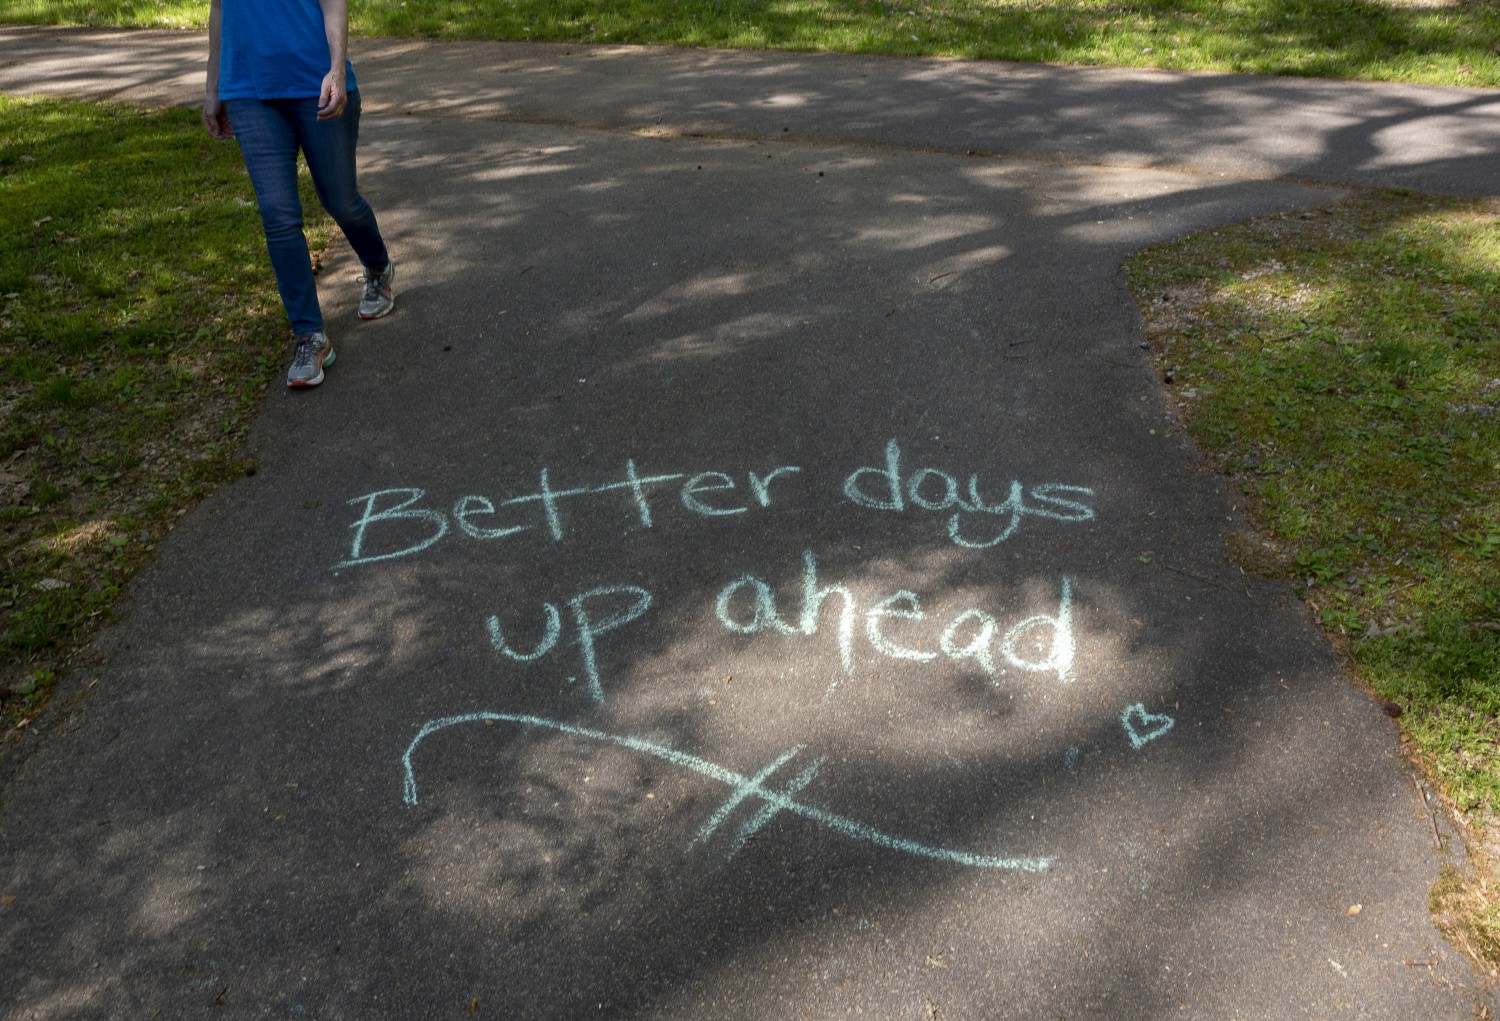 Better days
up ahead